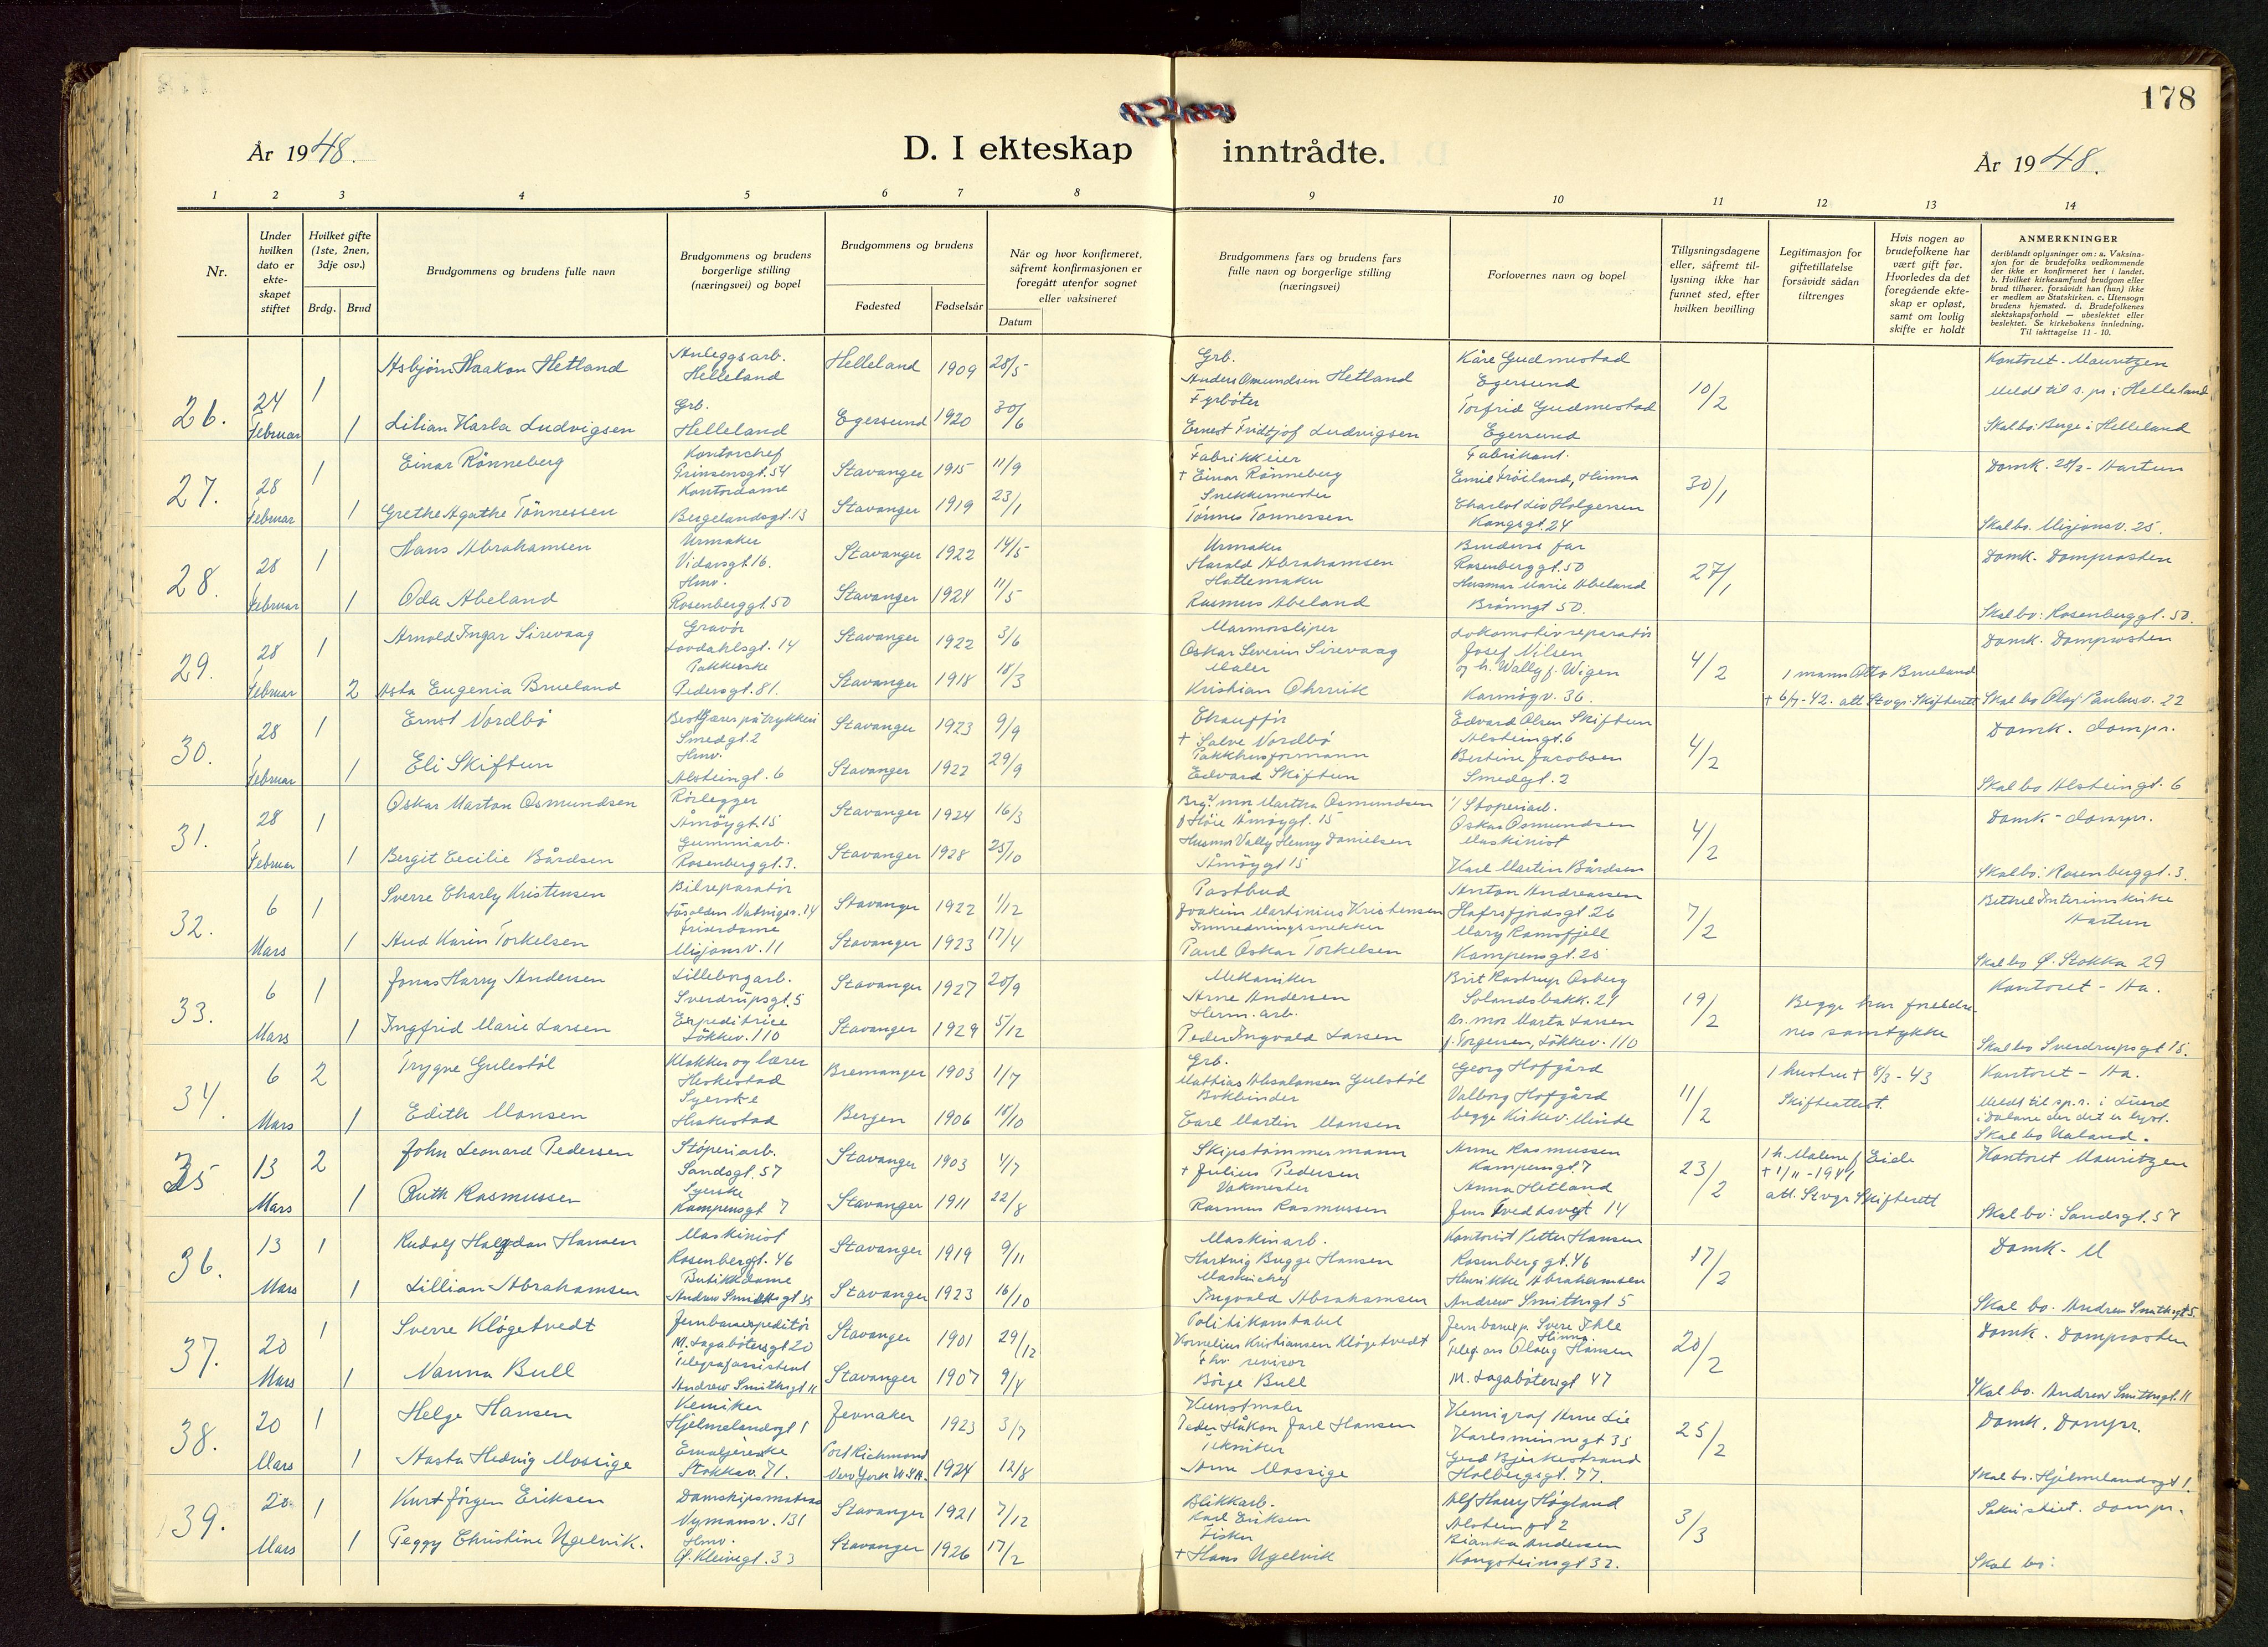 178
År 1948.
D. I ekteskap inntrådte.
År 1948.
1 2 3 4 5 6 7 8 9 10 11 12 13 14
Nr.
Under hvilken dato er ekte-skapet stiftet
Hvilket gifte (1ste, 2nen, 3dje osv.)
Brdg. Brud
Brudgommens og brudens fulle navn
Brudgommens og brudens borgerlige stilling (næringsvei) og bopel
Brudgommens og brudens
Fødested Fødselsår
Når og hvor konfirmeret, såfremt konfirmasjonen er foregått utenfor sognet eller vaksineret
Datum
Brudgommens fars og brudens fars fulle navn og borgerlige stilling (næringsvei)
Forlovernes navn og bopel
Tillysningsdagene eller, såfremt til-lysning ikke har funnet sted, efter hvilken bevilling
Legitimasjon for giftetillatelse forsåvidt sådan tiltrenges
Hvis nogen av brudefolkene har vært gift før. Hvorledes da det foregående ekte-skap er opløst, samt om lovlig skifte er holdt
ANMERKNINGER
deriblandt oplysninger om: a. Vaksina-sjon for de brudefolks vedkommende der ikke er konfirmeret her i landet. b. Hvilket kirkesamfund brudgom eller brud tilhører, forsåvidt han (hun) ikke er medlem av Statskirken. c. Utensogn brudens hjemsted. d. Brudefolkenes slektskapsforhold — ubeslektet eller beslektet. Se kirkebokens innledning. Til iakttagelse 11 - 10.
26. 24 Februar
1 Asbjørn Haakon Hetland Anleggsarb. Helleland Helleland 1909 28/5 Grb. Anders Omundsen Hetland Kåre Gudmestad Egersund 10/2 Kontoret - Mauritzen
Meldt til s.pr. i Helleland
1 Lilian Karla Ludvigsen Grb. Helleland Egersund 1920 30/6 Fyrbøter Ernest Fridtjof Ludvigsen Torfrid Gudmestad Egersund Skal bo: Buge i Helleland
27. 28 Februar
1 Einar Rönneberg Kontorchef Prinsensgt. 54 Stavanger 1915 11/9 Fabrikkeier + Einar Rönneberg Fabrikant. Emil Fröiland, Hinna 30/1 Domk. 28/2 - Hartun
1 Grethe Agathe Tönnessen Kontordame Bergelandsgt. 13 Stavanger 1919 23/1 Snekkermester Tönnes Tönnessen Charlot Liv Holgersen Kongsgt. 24 Skal bo. Misjonsv. 25.
28. 28 Februar
1 Hans Abrahamsen Urmaker Vidarsgt. 16. Stavanger 1922 14/5 Urmaker Harald Abrahamsen Brudens far Rosenberggt. 50 27/1 Domk. Domprosten
1 Oda Abeland Hmv. Rosenberggt. 50 Stavanger 1924 11/5 Hattemaker Rasmus Abeland Husmor Marie Abeland 50. Skal bo: Rosenberggt. 50.
29. 28 Februar
1 Arnold Ingar Sirevaag Gravör Lovdahlsgt. 14 Stavanger 1922 3/6 Marmorsliper Oskar Severin Sirevaag Lokomotivreparatör Josef Nilsen 4/2 Domk. Domprosten
2 Asta Eugenia Brueland Pakkerske Pedersgt. 81. Stavanger 1918 18/3 Maler Kristian og h. Wally f. Wigen Karmøgv. 36. 1 mann Otto Brueland + 6/7-42. att Stvgr. Skifterett Skal bo Olaf Paulusv. 22
30. 28 Februar
1 Ernst Nordbö Smedgt. 2 Stavanger 1923 9/9 Chauffør + Salve Nordbö Edvard Olsen Skiftun Alsteingt. 6 4/2 Domk. dompr.
1 Eli Skiftun Hmv. Alsteingt. 6 Stavanger 1922 29/9 Pakkhusformann Edvard Skiftun Bertine Jacobsen Smedgt. 2 Skal bo Alsteingt. 6
31. 28 Februar
1 Oskar Marton Osmundsen Rörlegger Åmöygt. 15 Stavanger 1924 16/3 Brg. mor Martha Osmundsen f. Höie Åmöygt. 15 Støperiarb. Oskar Osmundsen 4/2 Domk - dompr.
1 Bergit Cecilie Bårdsen Gummiarb. Rosenberggt. 3. Stavanger 1928 25/10 Husmor Vally Henny Danielsen Åmöygt 15 Maskinist Karl Martin Bårdsen Skal bo: Rosenberggt. 3.
32. 6 Mars
1 Sverre Charly Kristensen Bilreparatör Stavanger 1922 1/12 Postbud Joakim Martinius Kristensen Anton Andreassen Hafrsfjordsgt 26 7/2 Bethel Interimskirke Hartun
1 Aud Karin Torkelsen Friserdame Misjonsv. 11 Stavanger 1923 17/4 Innredningssnekker Paul Oskar Torkelsen Mary Ramsfjell Kampensgt. 25 Skal bo Ø. Stokka 29
33. 6 Mars
1 Jonas Harry Andersen Lilleborgarb. Sverdrupsgt. 5 Stavanger 1927 20/9 Mekaniker Arne Andersen Brit Rostrup Osberg Solandsbakk. 24 19/2 Begge har foreldre nes samtykke Kontoret - Ha.
1 Ingfrid Marie Larsen Expeditrice Løkkev. 110 Stavanger 1929 5/12 Herm. arb. Peder Ingvald Larsen Br. mor Marta Larsen f. Torgersen, Løkkev. 110 Skal bo Sverdrupsgt 15.
34. 6 Mars
2 Trygve Gulestöl Klokker og lærer Heskestad Bremanger 1903 1/7 Grb. Mathias Absalonsen Gulstöl Georg Hofgård 11/2 1 hustru + 8/3 - 43 Skifteattest. Kontoret - Ha.
1 Edith Monsen Syerske Heskestad Bergen 1906 18/10 Bokbinder Carl Martin Monsen Valborg Hofgård begge Kirkev. Minde Meldt til sp.r. i Lund i Dalane der det er lyst. Skal bo Ualand.
35 13 Mars
2 John Leonard Pedersen Støperiarb. Sandsgt. 57 Stavanger 1903 4/7 Skipstømmermann + Julius Pedersen Anne Rasmussen Kampensgt. 7 23/2 1 h. Malene f. Eide + 1/11 - 1941 att. Stvgr Skifterett Kontoret Mauritzen
1 Ruth Rasmussen Syerske Kampensgt 7 Stavanger 1911 22/8 Vakmester Rasmus Rasmussen Anna Hetland 14 Skal bo: Sandsgt. 57
36. 13 Mars
1 Rudolf Halfdan Hansen Maskinist Rosenberggt. 46 Stavanger 1919 9/11 Maskinarb. Hartvig Bugge Hansen Kontorist Petter Hansen Rosenberggt. 46 17/2 Domk - M
1 Lillian Abrahamsen Butikkdame Stavanger 1923 16/10 Maskinchef Ingvald Abrahamsen Henrikke Abrahamsen Andrew Smithsgt 5 Skal bo. Andrew Smithsgt 5.
37. 20 Mars
1 Sverre Klögetvedt Jernbaneexpeditör M. Lagabötersgt 20 Stavanger 1901 29/12 Politikonstabel Kornelius Kristiansen Klögetvedt Jernbaneexp. Sverre Ihle Hinna. 20/2 Domk. Domprosten
1 Nanna Bull Telegrafassistent Andrew Smithsgt 11 Stavanger 1907 9/4 fhv. revisor Börge Bull Telef. ass Olaug Hansen M. Lagabötersgt 47 Skal bo. Andrew Smithsgt. 11
38. 20 Mars
1 Helge Hansen Kemiker Hjelmelandsgt 1 Jevnaker 1923 3/7 Kunstmaler Peder Håkon Jarl Hansen Kemigraf Arne Lie Karlsminnegt 35 25/2 Domk. Dompr.
1 Aasta Hedvig Mossige Emaljerske Stokkav. 71. Port Richmond New York U.S.A. 1924 12/8 Tekniker Arne Mossige Gerd Bjerkestrand Holbergsgt. 77. Skal bo. Hjelmelandsgt 1.
39. 20 Mars
1 Kurt Jörgen Eriksen Damskipsmatros Nymansv. 131 Stavanger 1921 7/12 Blikkarb. Karl Eriksen Alf Harry Högland Alstein gt 2 3/3 Sakristiet. dompr.
1 Peggy Christine Ugelvik. Hmv. Ø. Kleivegt. 33 Stavanger 1926 17/2 Fisker + Hans Ugelvik Bianka Andersen Kongsteinsgt 32. Skal bo: